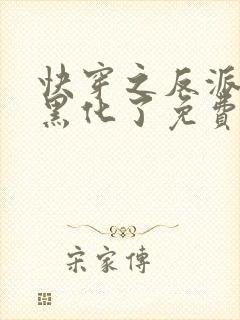 快穿之反派
黑化了免費
宋家傳